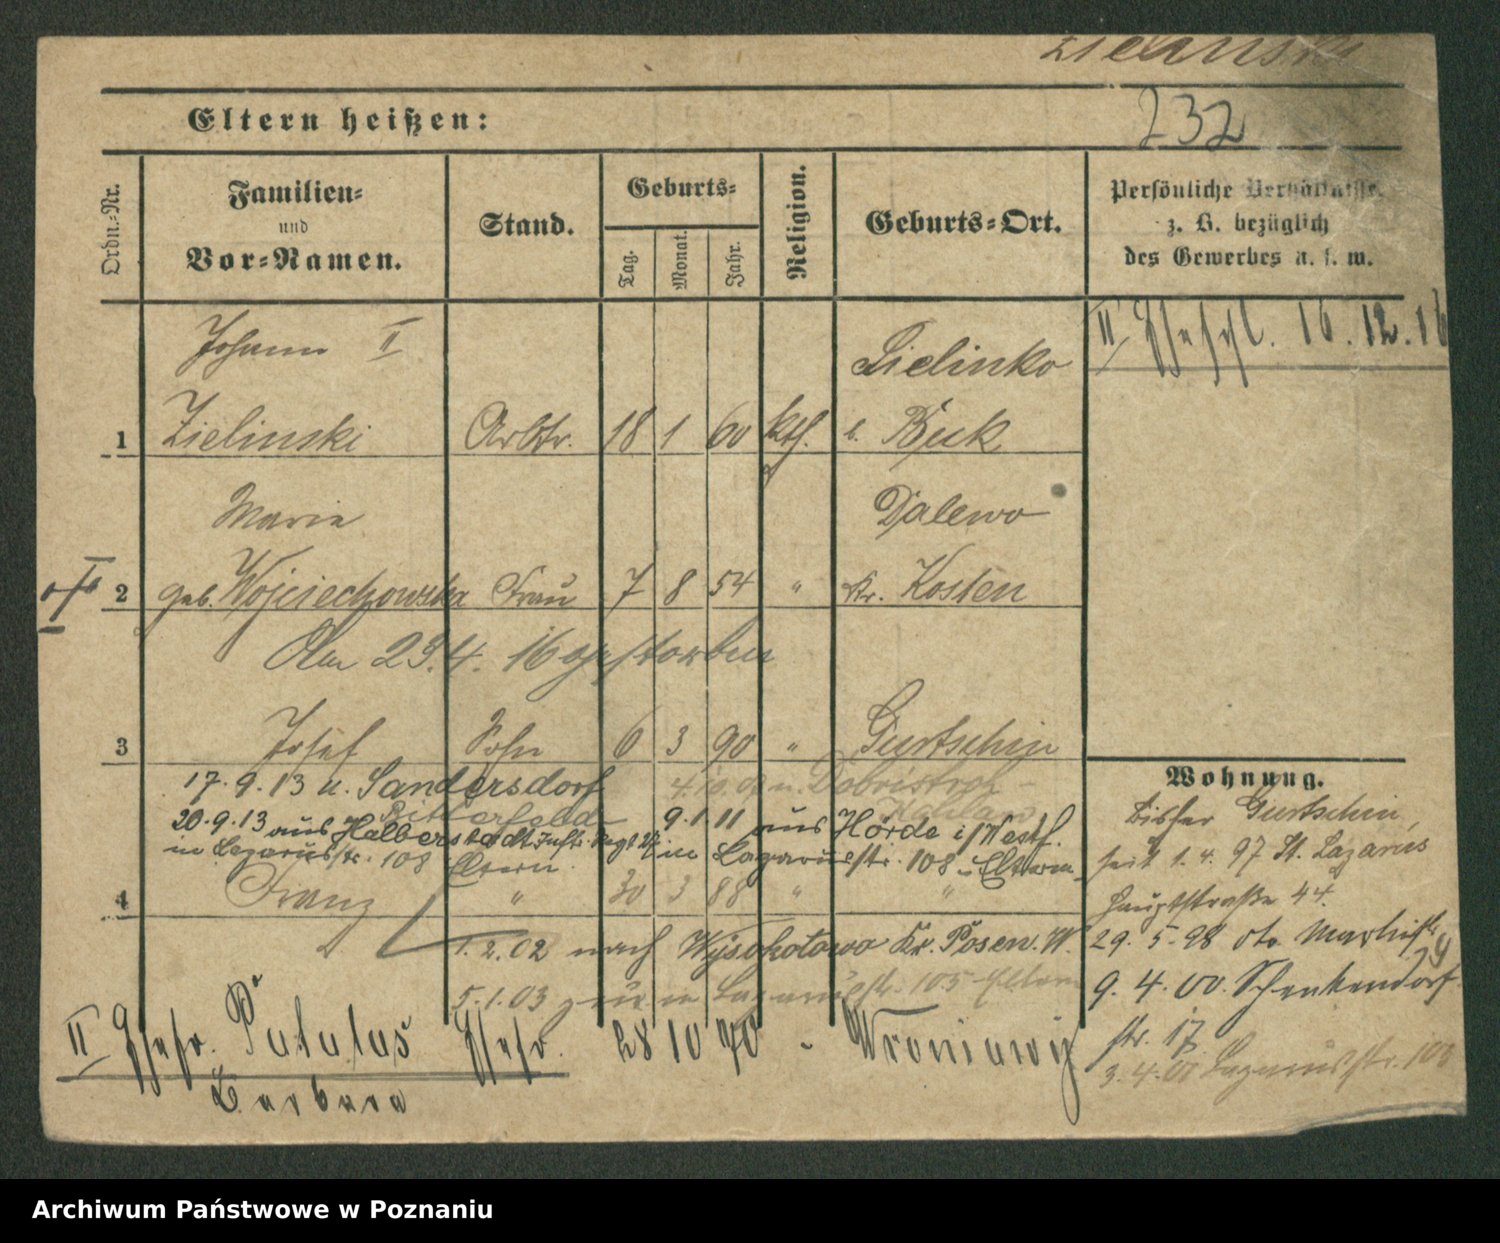 Zielinski
232
Eltern heißen:
Ordn.-Nr.
Familien-
und
Vor-Namen.
Stand.
Geburts-
Tag.
Monat.
Jahr.
Religion.
Geburts-Ort.
Persönliche Verhältnisse.
z. B. bezüglich
des Gewerbes u. s. w.
Johann II
Zielinko
II 16.12.16
1 Zielinski Arbtr. 18 1 60 kth. b. Buk
Marie
Dalewo
2 geb. Wojciechowska Frau 7 8 54 " Kr. Kosten
Am 23.4.16 gestorben
3 Josef Sohn 6 3 90 " Gurtschin
17.9.13 n. Sandersdorf
Bitterfeld
4.10.09 n. Dobristroh
20.9.13 aus Halberstadt Inftr. Regt 27
9.1.11 aus Hörde i/Westf.
in Lazarusstr. 108 Eltern.
in Lazarusstr. 108 z. Eltern
4 Franz " 30 3 88 " "
1.2.02 nach Wysokotowo Kr. Posen. W.
5.1.03 zur in Lazarusstr. 105 Eltern
II Ehefr. Patalas Ehefr. 28 10 70 - Wroniawy
Barbara
Wohnung.
bisher Gurtschin,
seit 1.4.97 St. Lazarus
Hauptstraße 44.
29.5.98 dto Marktstr.
9.4.00. Schenkendorf
str. 17
3.4.01 Lazarusstr. 108
Archiwum Państwowe w Poznaniu